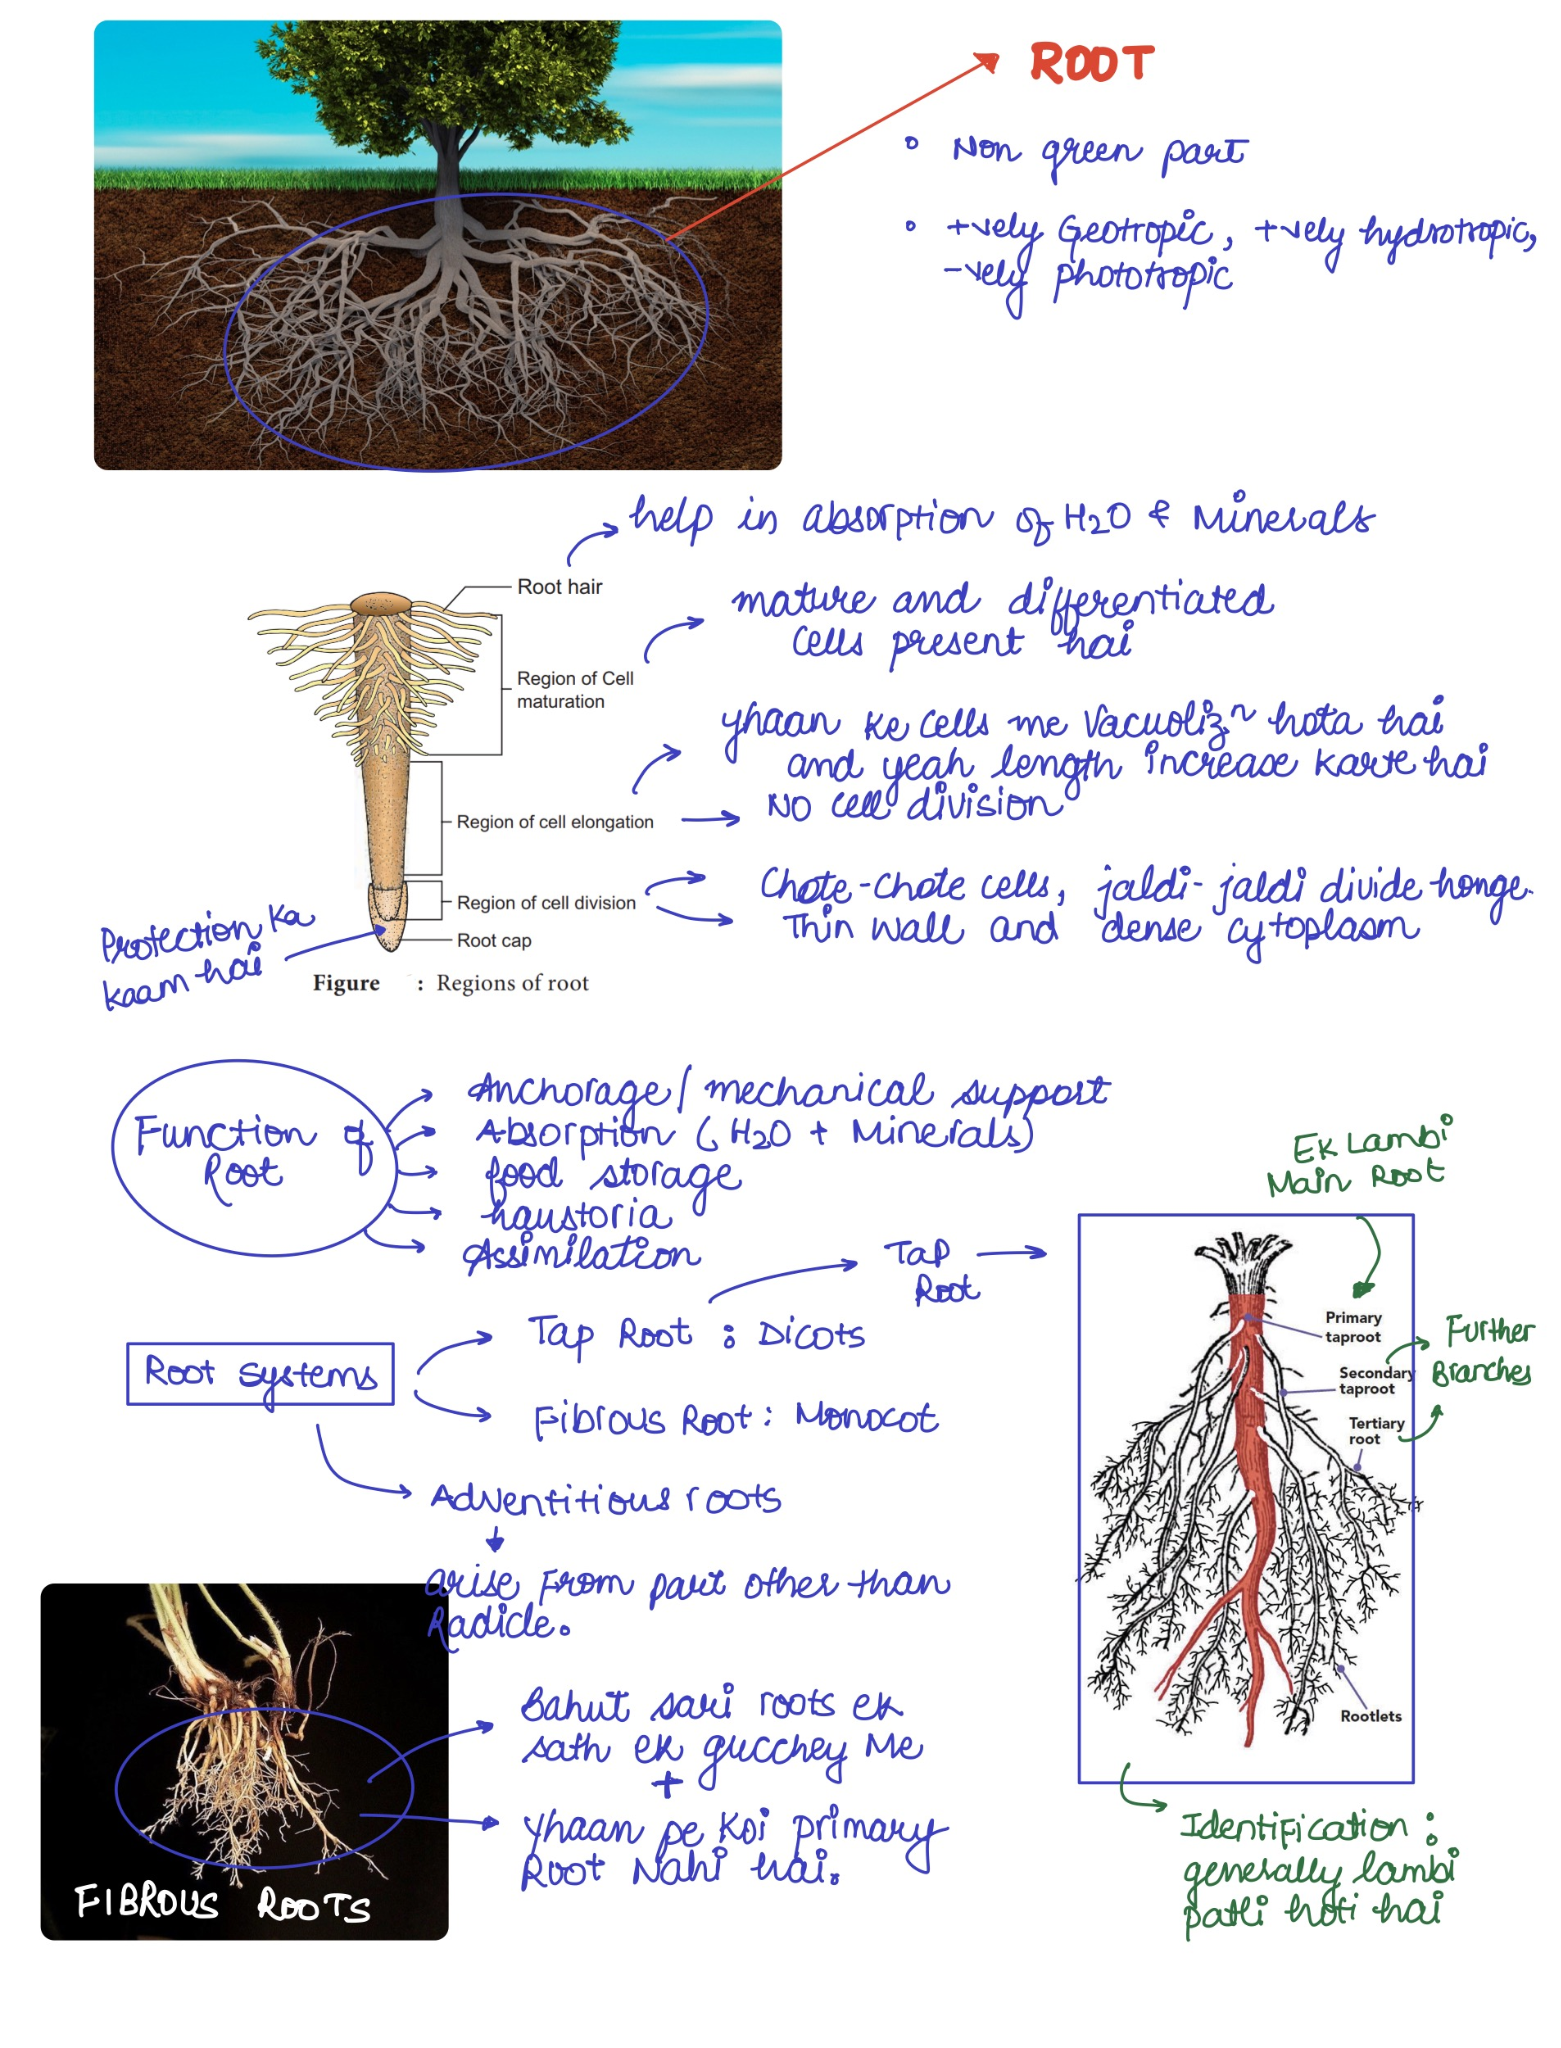 ROOT
° Non green part
° +vely Geotropic, +vely hydrotropic,
-vely phototropic
help in absorption of H2O & Minerals
Root hair
mature and differentiated
cells present hai
Region of Cell
maturation
yhaan ke cells me Vacuoliz^n hota hai
and yeah length increase karte hai
NO cell division
Region of cell elongation
Chote-chote cells, jaldi-jaldi divide honge.
Thin wall and dense cytoplasm
Region of cell division
Root cap
Protection ka
kaam hai
Figure : Regions of root
Function of
Root
Anchorage/ mechanical support
Absorption (H2O + Minerals)
food storage
haustoria
Assimilation
Ek Lambi
Main Root
Tap
Root
Root systems
Tap Root : Dicots
Fibrous Root : Monocot
Primary
taproot
Secondary
taproot
Tertiary
root
Further
Branches
Rootlets
Adventitious roots
arise From part other than
Radicle.
Bahut sari roots ek
sath ek gucchey Me
+
yhaan pe koi primary
Root Nahi hai.
FIBROUS ROOTS
Identification :
generally lambi
patli hoti hai